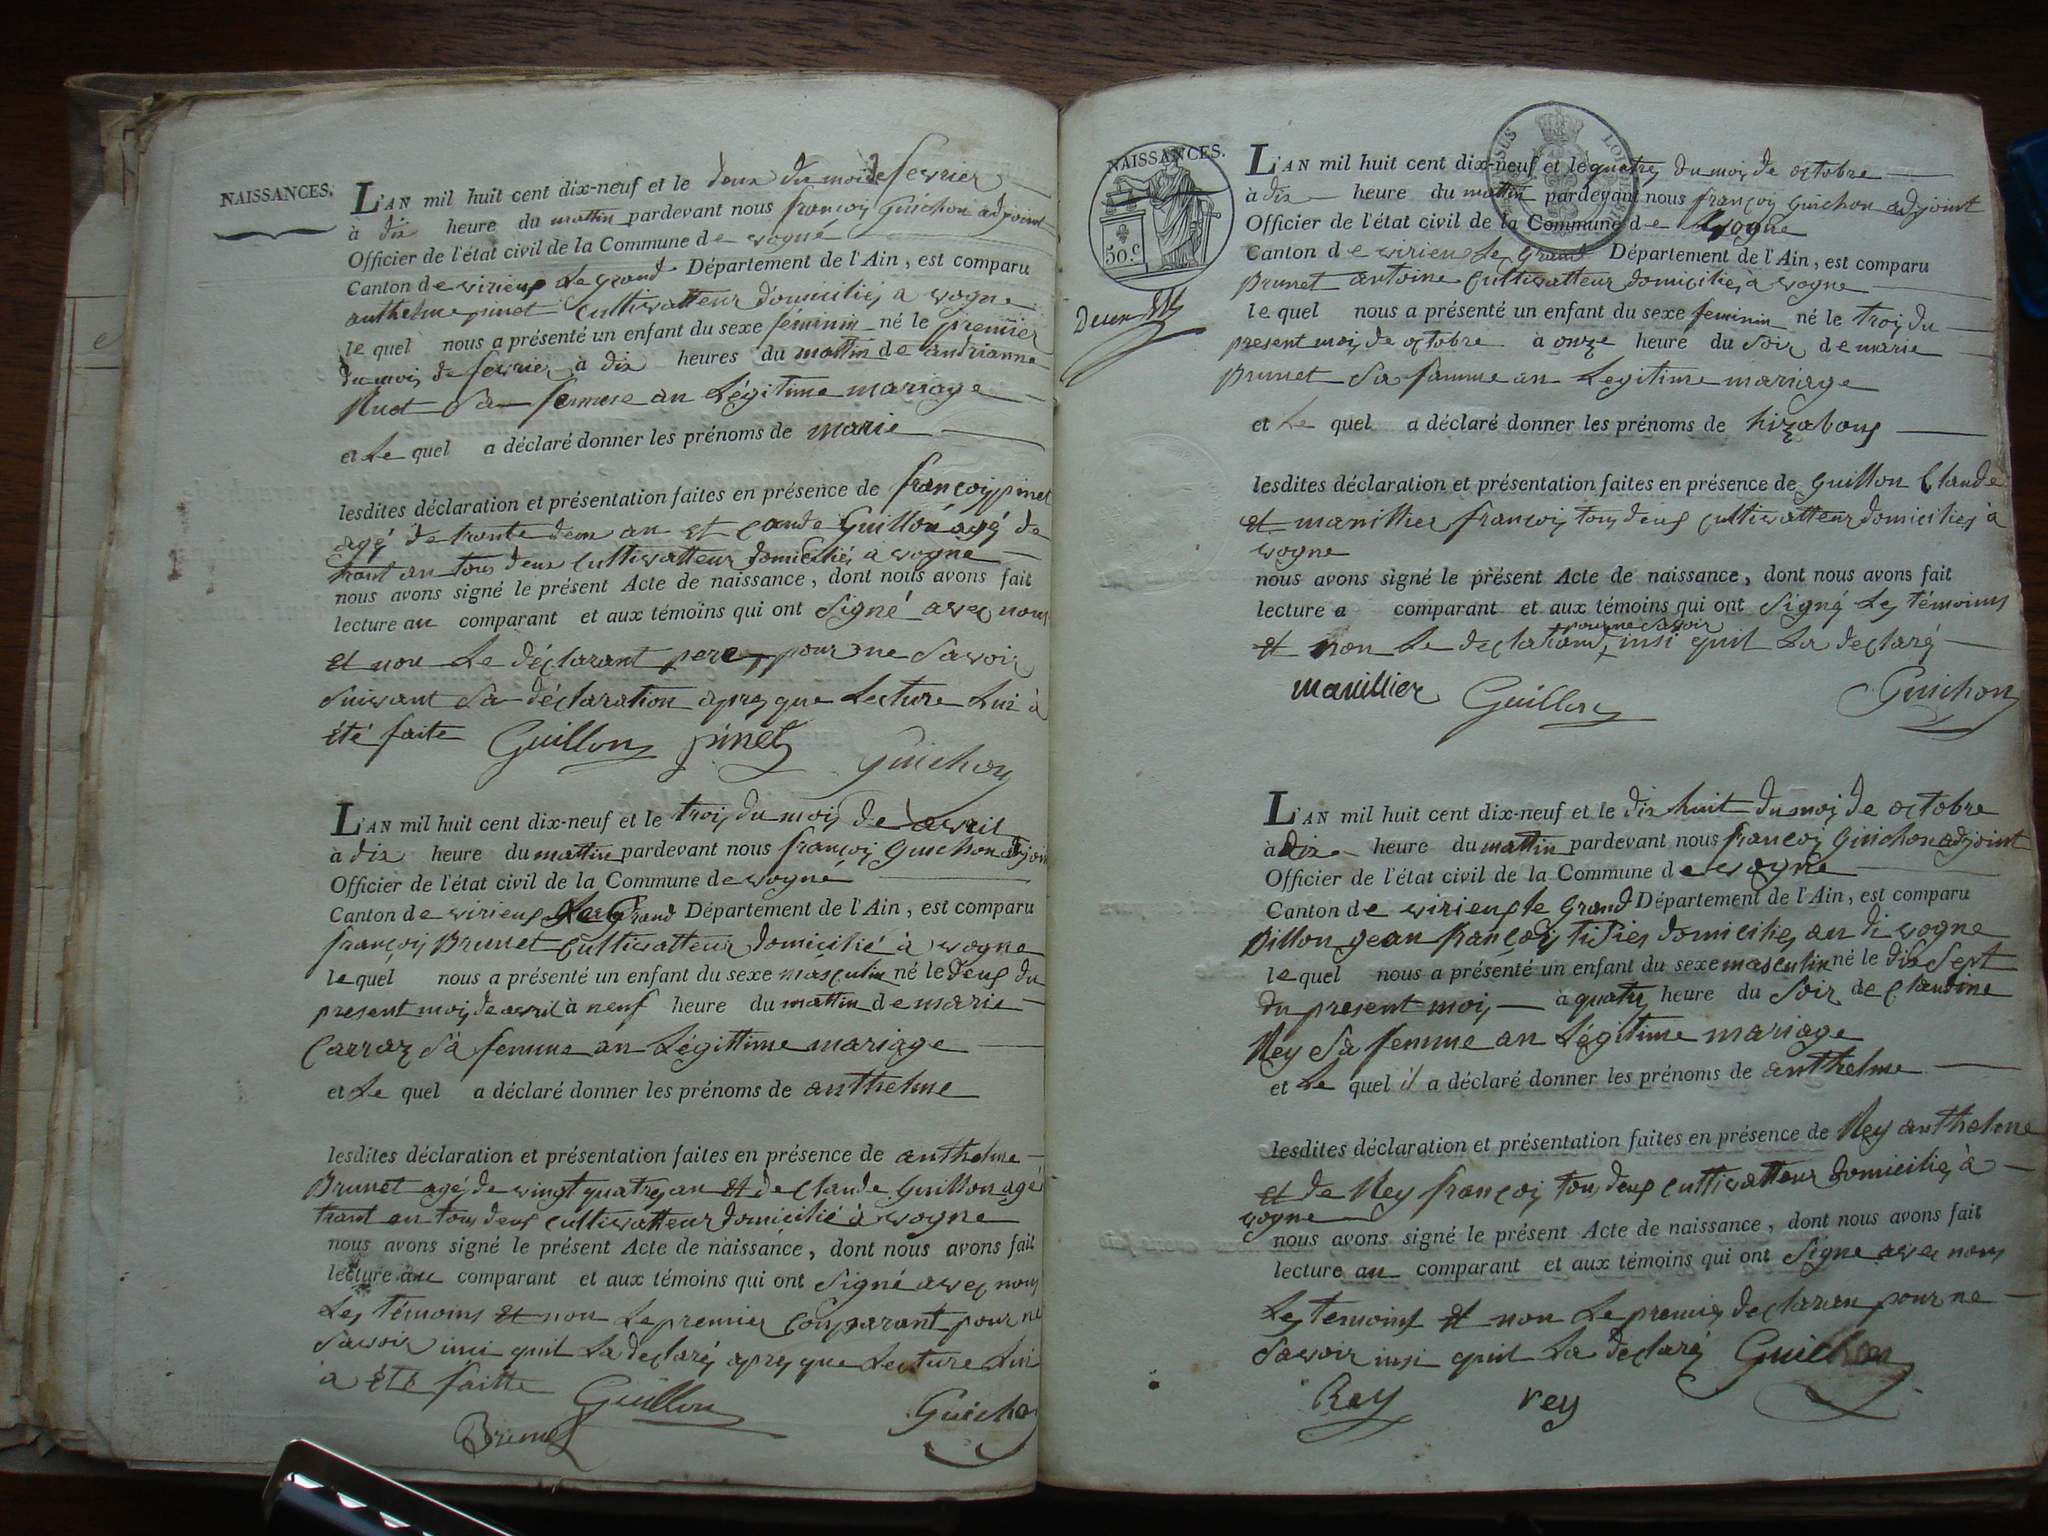 NAISSANCES.
L'AN mil huit cent dix-neuf et le deux du mois de fevrier
à dix heure du mattin pardevant nous françois Guichon adjoint
Officier de l'état civil de la Commune de vogne
Canton de virieux Le grand Département de l'Ain, est comparu
anthelme pinet cultivatteur domiciliés a vogne
le quel nous a présenté un enfant du sexe féminin né le premier
du mois de fevrier à dix heures du mattin de andrianne
sa femme an Légitime mariage
et Le quel a déclaré donner les prénoms de marie
lesdites déclaration et présentation faites en présence de françois pinet
agé de trante deux an et Guillon agé de
trant an tous deux cultivatteur domiciliés à vogne
nous avons signé le présent Acte de naissance, dont nous avons fait
lecture au comparant et aux témoins qui ont Signé avec nous
et non Le déclarant pere pour ne Savoir
Suivant Sa déclaration apres que Lecture Lui à
été faite Guillon pinet Guichon
L'AN mil huit cent dix-neuf et le trois du mois de avril
à dix heure du mattin pardevant nous françois Guichon adjoin
Officier de l'état civil de la Commune de vogne
Canton de virieux Le Grand Département de l'Ain, est comparu
françois Brunet cultivatteur domicilié à vogne
le quel nous a présenté un enfant du sexe masculin né le deux du
present mois de avril à neuf heure du mattin de marie
Carraz Sa femme an Légittime mariage
et Le quel a déclaré donner les prénoms de anthelme
lesdites déclaration et présentation faites en présence de anthelme
Brunet agé de vingt quatres an et de Claude Guillon agé
trant an tous deux cultivatteur domicilié à vogne
nous avons signé le présent Acte de naissance, dont nous avons fait
lecture au comparant et aux témoins qui ont Signé avec nous
Les témoins et non Le premier comparant pour ne
Savoir insi quil La declaré apres que Lecture Lui
à été faitte Guillon Guichon
Brunet
NAISSANCES.
50.C
L'AN mil huit cent dix-neuf et le quatres du mois de octobre
à dix heure du mattin pardevant nous françois Guichon adjoint
Officier de l'état civil de la Commune de vogne
Canton de virieu Le Grand Département de l'Ain, est comparu
Brunet antoine Cultivatteur domiciliés à vogne
le quel nous a présenté un enfant du sexe feminin né le trois du
present mois de octobre à onze heure du Soir de marie
Brunet Sa famme an Legitime mariage
et Le quel a déclaré donner les prénoms de
lesdites déclaration et présentation faites en présence de Guillon Claude
et françois tous deux cultivatteur domiciliés à
vogne
nous avons signé le présent Acte de naissance, dont nous avons fait
lecture a comparant et aux témoins qui ont Signé Les témoins
pour ne Savoir
et non Le insi quil La declaré
Guillon Guichon
L'AN mil huit cent dix-neuf et le dix huit du mois de octobre
à dix heure du mattin pardevant nous françois Guichon adjoint
Officier de l'état civil de la Commune de vogne
Canton de virieux le Grand Département de l'Ain, est comparu
Billon jean françois domiciliés vogne
le quel nous a présenté un enfant du sexe masculin né le dix Sept
du present mois à quatres heure du Soir de Claudine
Rey Sa femme an Légitime mariage
et Le quel il a déclaré donner les prénoms de anthelme
lesdites déclaration et présentation faites en présence de Rey anthelme
et de Rey françois tous deux cultivatteur domiciliés à
vogne
nous avons signé le présent Acte de naissance, dont nous avons fait
lecture au comparant et aux témoins qui ont Signe avec nous
Les temoins et non Le premier declaran pour ne
Savoir insi quil La declaré Guichon
Rey rey